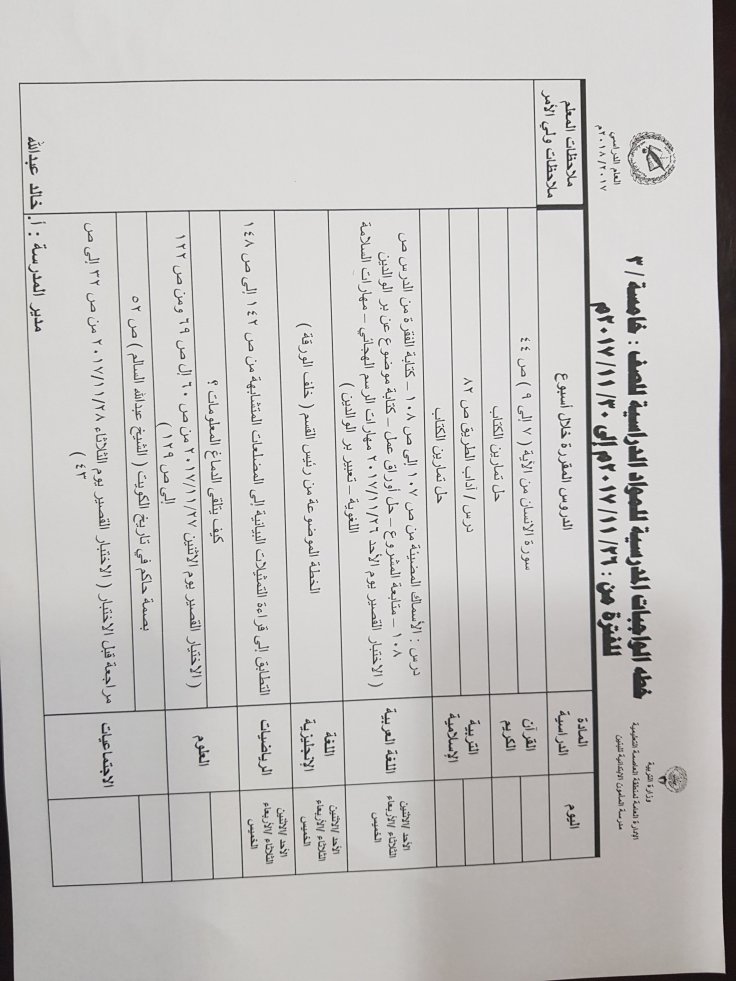 وزارة التربية
الإدارة العامة لمنطقة العاصمة التعليمية
العام الدراسي
٢٠١٨/٢٠١٧م
خطه الواجبات المدرسية للمواد الدراسية للصف : خامسة / ٣
للفترة من : ٢٦/ ٢٠١٧/١١م إلى ٣٠/ ٢٠١٧/١١م
اليوم
المادة الدراسية
الدروس المقررة خلال أسبوع
ملاحظات المعلم
ملاحظات ولي الأمر
القرآن الكريم
سورة الانسان من الآية ( ٧ إلى ٩ ) ص ٤٤
حل تمارين الكتاب
التربية الإسلامية
درس / آداب الطريق ص ٨٢
حل تمارين الكتاب
الأحد /الاثنين
الثلاثاء /الأربعاء
الخميس
اللغة العربية
درس : الأسماك المضيئة من ص ١٠٧ إلى ص ١٠٨ – كتابة الفقرة من الدرس ص
١٠٨ – متابعة المشروع – حل أوراق عمل – كتابة موضوع عن بر الوالدين
( الاختبار القصير يوم الأحد ٢٠١٧/١١/٢٦ مهارات الرسم الهجائي – مهارات السلامة
اللغوية – تعبير بر الوالدين )
الأحد /الاثنين
الثلاثاء /الأربعاء
الخميس
اللغة الإنجليزية
الخطة الموضوعة من رئيس القسم ( خلف الورقة )
الأحد /الاثنين
الثلاثاء /الأربعاء
الخميس
الرياضيات
التطابق إلى قراءة التمثيلات البيانية إلى المضلعات المتشابهة من ص ١٤٢ إلى ص ١٤٨
العلوم
كيف يتلقى الدماغ المعلومات ؟
( الاختبار القصير يوم الاثنين ٢٠١٧/١١/٢٧ من ص ٦٠ إلى ص ٦٩ ومن ص ١٢٢
إلى ص ١٢٩ )
الاجتماعيات
بصمة حاكم في تاريخ الكويت ( الشيخ عبدالله السالم ) ص ٥٢
مراجعة قبل الاختبار ( الاختبار القصير يوم الثلاثاء ٢٠١٧/١١/٢٨ من ص ٣٢ إلى ص
٤٣ )
مدير المدرسة : أ. خالد عبدالله